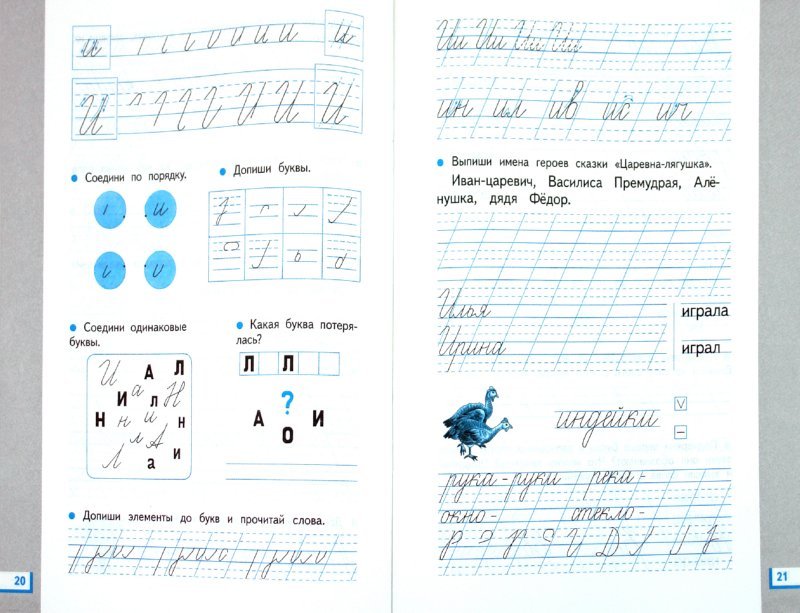 и и и и
И И И И
Соедини по порядку.
Допиши буквы.
и
Соедини одинаковые
буквы.
Какая буква потеря-
лась?
И А Л
И а л Н
Н н и н
л А и
Л а
Л Л
?
А О И
Допиши элементы до букв и прочитай слова.
20
Ии Ии Ии Ии
ин ил ив ис ич
Выпиши имена героев сказки «Царевна-лягушка».
Иван-царевич, Василиса Премудрая, Алё-
нушка, дядя Фёдор.
Илья играла
Ирина играл
индейки
рука - руки река -
окно - стекло -
21